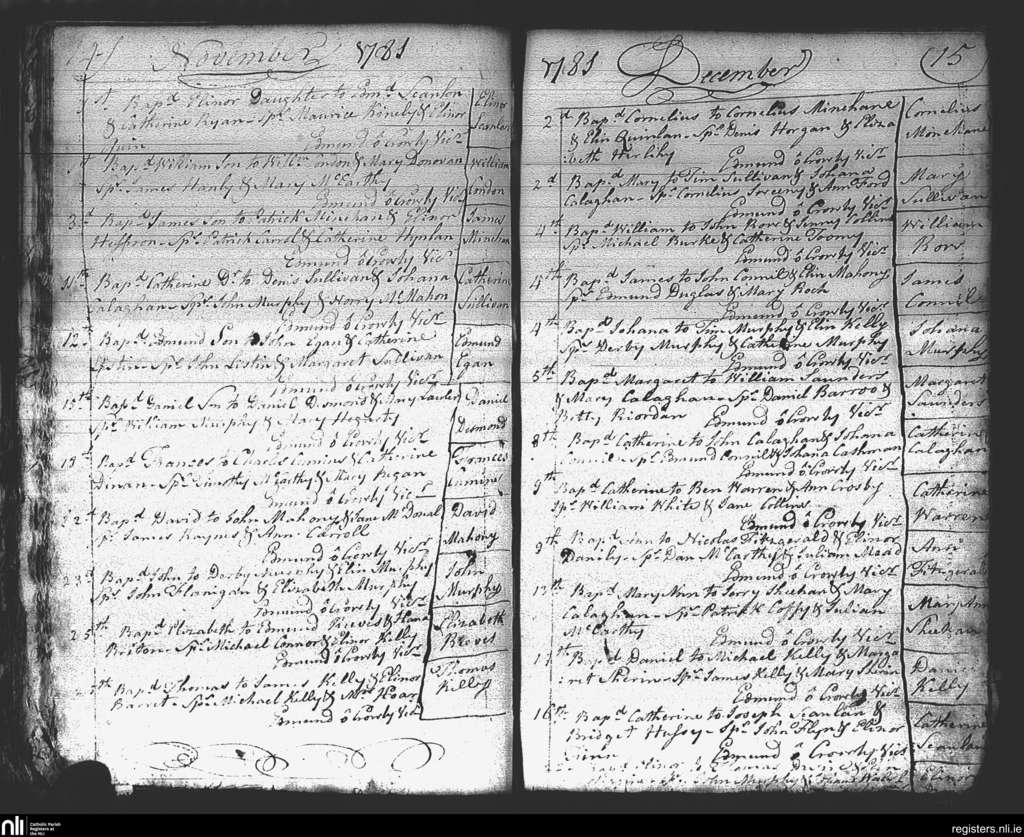 14
November 1781
1st Bapd Elinor Daughter to Edmd Scanlon
& Catherine Ryan - Spr Maurice & Elinor
Edmund ô Crowly Vicr
Elinor
Scanlon
Bapd William Son to Willm Condon & Mary Donovan
Spr James Hanly & Mary McCarthy
Edmund ô Crowly Vicr
William
Condon
3d Bapd James Son to Patrick Minehan & Elinor
Heffron - Spr Patrick Carrol & Catherine
Edmund ô Crowly Vicr
James
Minehan
11th Bapd Catherine Dr to Denis Sullivan & Johana
Calaghan - Spr John Murphy & Honry McMahon
Edmund ô Crowly Vicr
Catherine
Sullivan
12th Bapd Edmund Son to John Egan & Catherine
Spr John & Margaret Sullivan
Edmund ô Crowly Vicr
Edmund
Egan
13th Bapd Daniel Son to Daniel Desmond & Mary
Spr William Murphy & Mary Hegarty
Edmund ô Crowly Vicr
Daniel
Desmond
Bapd Frances to Charles Cumins & Catherine
Dinan - Spr Timothy McCarthy & Mary Regan
Edmund ô Crowly Vicr
Frances
22d Bapd David to John Mahony & Jane McDonal
Spr James Haynes & Ann Carroll
Edmund ô Crowly Vicr
David
Mahony
23d Bapd John to Derby Murphy & Elin Murphy
Spr John Flanigan & Elizabeth Murphy
Edmund ô Crowly Vicr
John
Murphy
25th Bapd Elizabeth to Edmund Reeves &
Briton - Spr Michael Connor & Elinor Kelly
Edmund ô Crowly Vicr
Elizabeth
Reeves
Bapd Thomas to James Kelly & Elinor
Barret - Spr Michael Kelly & Mrs Hoare
Edmund ô Crowly Vicr
Thomas
Kelly
1781 December 15
2d Bapd Cornelius to Cornelius Minehane
& Elin Quinlan - Spr Denis Horgan & Eliza
beth Hirlihy
Edmund ô Crowly Vicr
Cornelius
Minehane
2d Bapd Mary to Tim Sullivan & Johana
Calaghan - Spr Cornelius Sweeny & Ann Ford
Edmund ô Crowly Vicr
Mary
Sullivan
4th Bapd William to John Rors & Jinny Collins
Spr Michael Burke & Catherine Toomy
Edmund ô Crowly Vicr
William
Rors
4th Bapd James to John Connil & Elin Mahony
Spr Edmund Duglas & Mary Roch
Edmund ô Crowly Vicr
James
Connil
4th Bapd Johana to Tim Murphy & Elin Kelly
Spr Derby Murphy & Catherine Murphy
Edmund ô Crowly Vicr
Johana
Murphy
5th Bapd Margaret to William Saunders
& Mary Calaghan - Spr Daniel Barroo &
Betty Riordan
Edmund ô Crowly Vicr
Margaret
Saunders
8th Bapd Catherine to John Calaghan & Johana
Connil - Spr Edmund Connil & Johana
Edmund ô Crowly Vicr
Catherine
Calaghan
9th Bapd Catherine to Ben Warren & Ann Crosby
Spr William White & Jane Collins
Edmund ô Crowly Vicr
Catherine
Warren
9th Bapd Ann to Nicolas Fitzgerald & Elinor
Danily - Spr Dan McCarthy & Juliam Mead
Edmund ô Crowly Vicr
Ann
Fitzgerald
13th Bapd Mary Ann to Jerry Sheehan & Mary
Calaghan - Spr Patrick Coffy & Julian
McCarthy
Edmund ô Crowly Vicr
Mary Ann
Sheehan
14th Bapd Daniel to Michael Kelly & Marga
ret - Spr James Kelly & Mary
Edmund ô Crowly Vicr
Daniel
Kelly
16th Bapd Catherine to Joseph Scanlan &
Bridget Hussey - Spr John Flyn & Elinor
Edmund ô Crowly Vicr
Catherine
Scanlan
Spr John Murphy &
Elinor
nli
Catholic Parish
Registers at
the NLI
registers.nli.ie